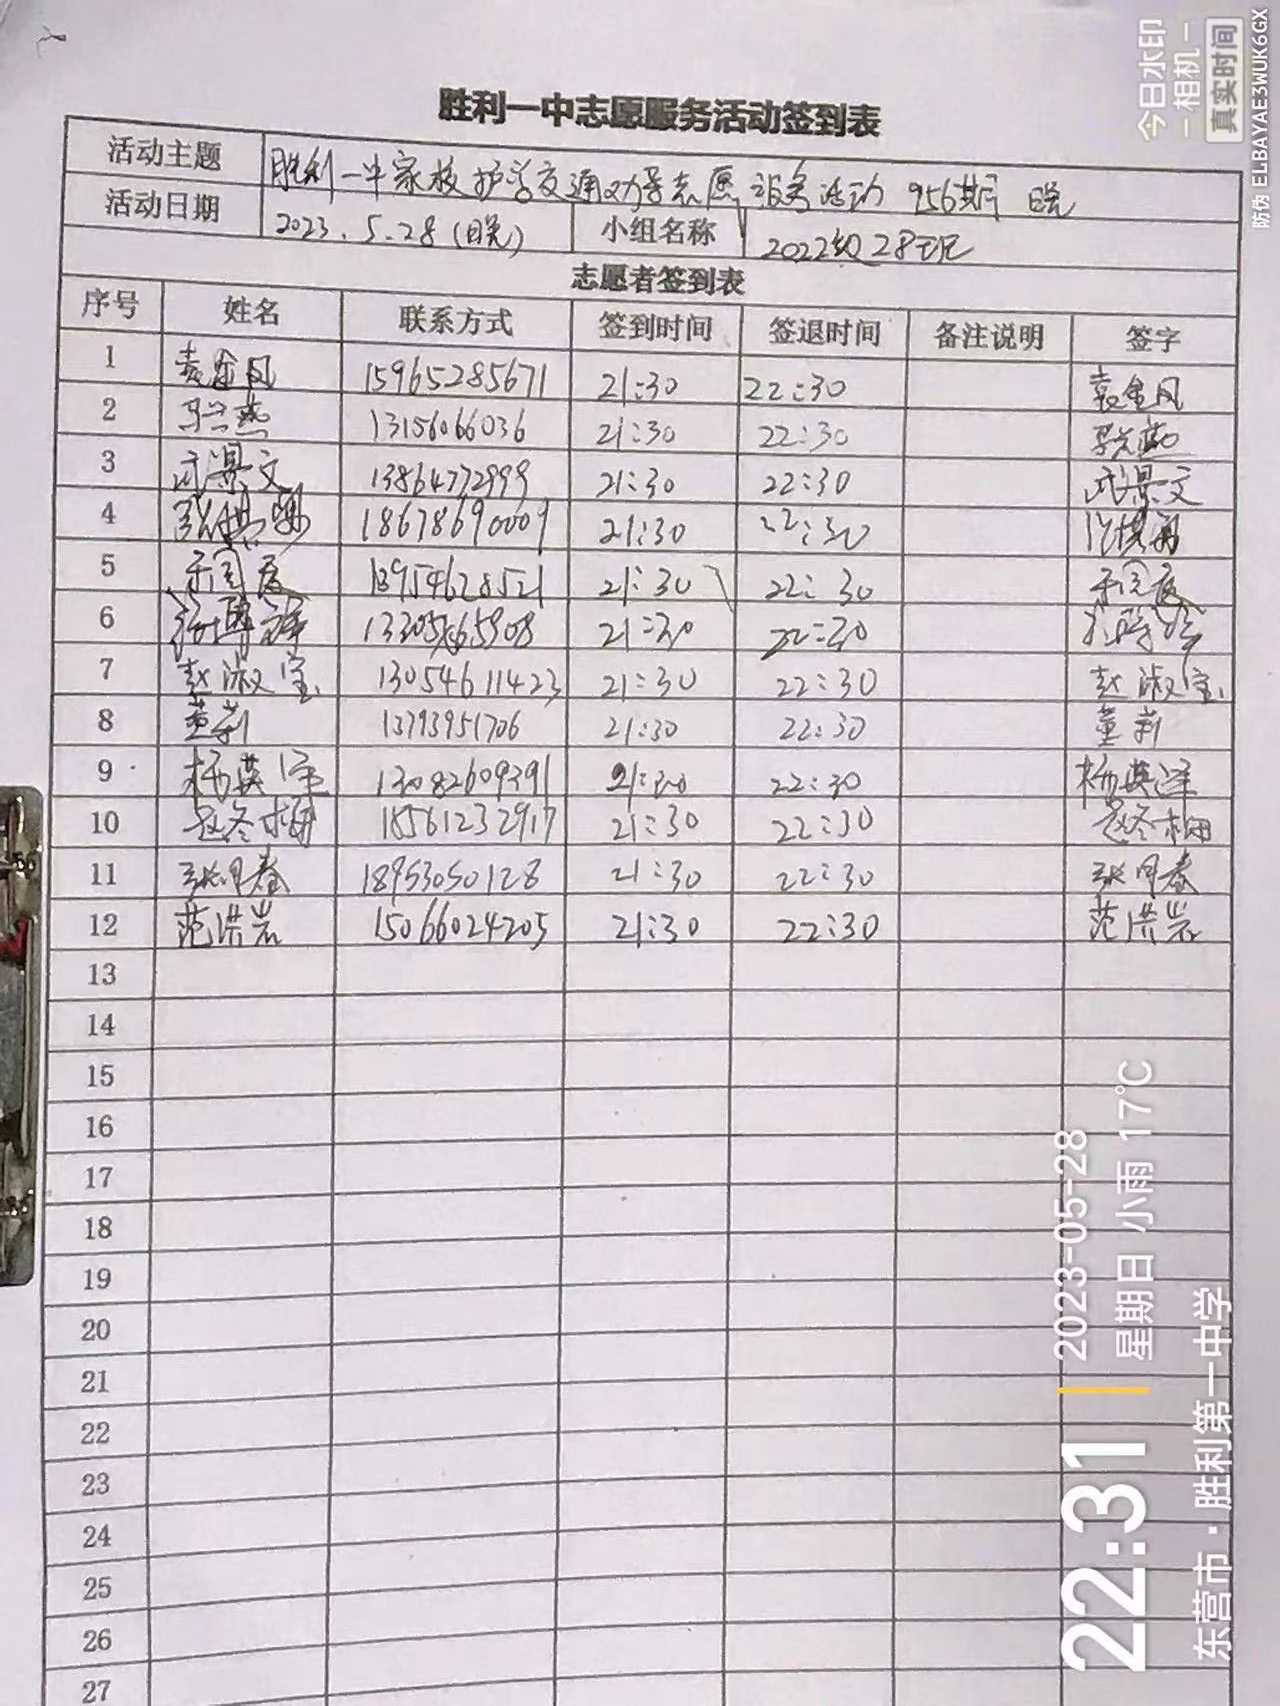 胜利一中志愿服务活动签到表
活动主题 胜利一中家校护学交通劝导志愿服务活动 956期 晚
活动日期 2023.5.28(晚) 小组名称 2022级28班
志愿者签到表
序号 姓名 联系方式 签到时间 签退时间 备注说明 签字
1 袁金凤 15965285671 21:30 22:30 袁金凤
2 13156066036 21:30 22:30
3 武景文 13864772999 21:30 22:30 武景文
4 18678690009 21:30 22:30
5 13954628521 21:30 22:30
6 21:30 22:30
7 赵淑宝 13054611423 21:30 22:30 赵淑宝
8 董莉 13793951706 21:30 22:30 董莉
9 13082609391 21:30 22:30
10 赵冬梅 18561232917 21:30 22:30 赵冬梅
11 18953050128 21:30 22:30
12 范洪岩 15066024205 21:30 22:30 范洪岩
13
14
15
16
17
18
19
20
21
22
23
24
25
26
27
今日水印
相机
真实时间
防伪 ELBAYAE3WUK6GX
22:31
2023-05-28
星期日 小雨 17℃
东营市·胜利第一中学